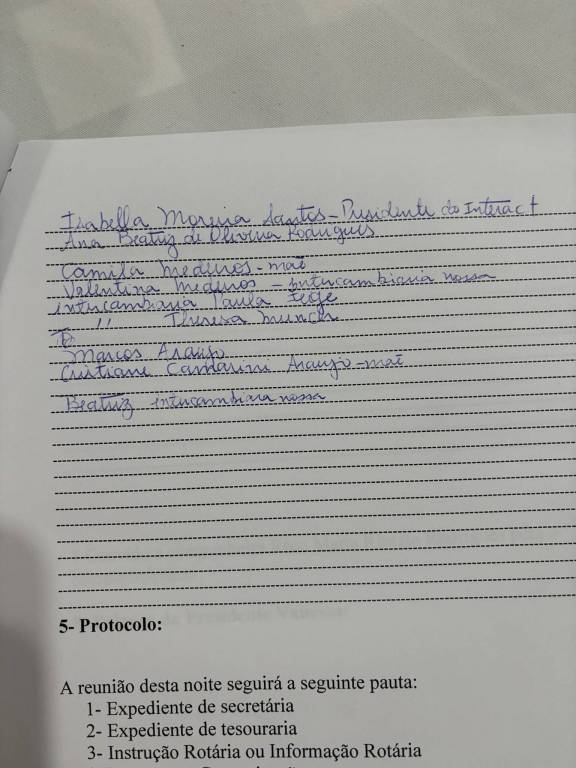 Isabella Moreira Santos - Presidente do Interact
Ana Beatriz de Oliveira Rodrigues
Camila Medeiros - mãe
Valentina Medeiros - intercambiaria nossa
intercambiaria Paula
" Theresa Munch
Marcos Araujo
Cristiane Camarini Araujo - mãe
Beatriz intercambiaria nossa
5- Protocolo:
A reunião desta noite seguirá a seguinte pauta:
1- Expediente de secretária
2- Expediente de tesouraria
3- Instrução Rotária ou Informação Rotária